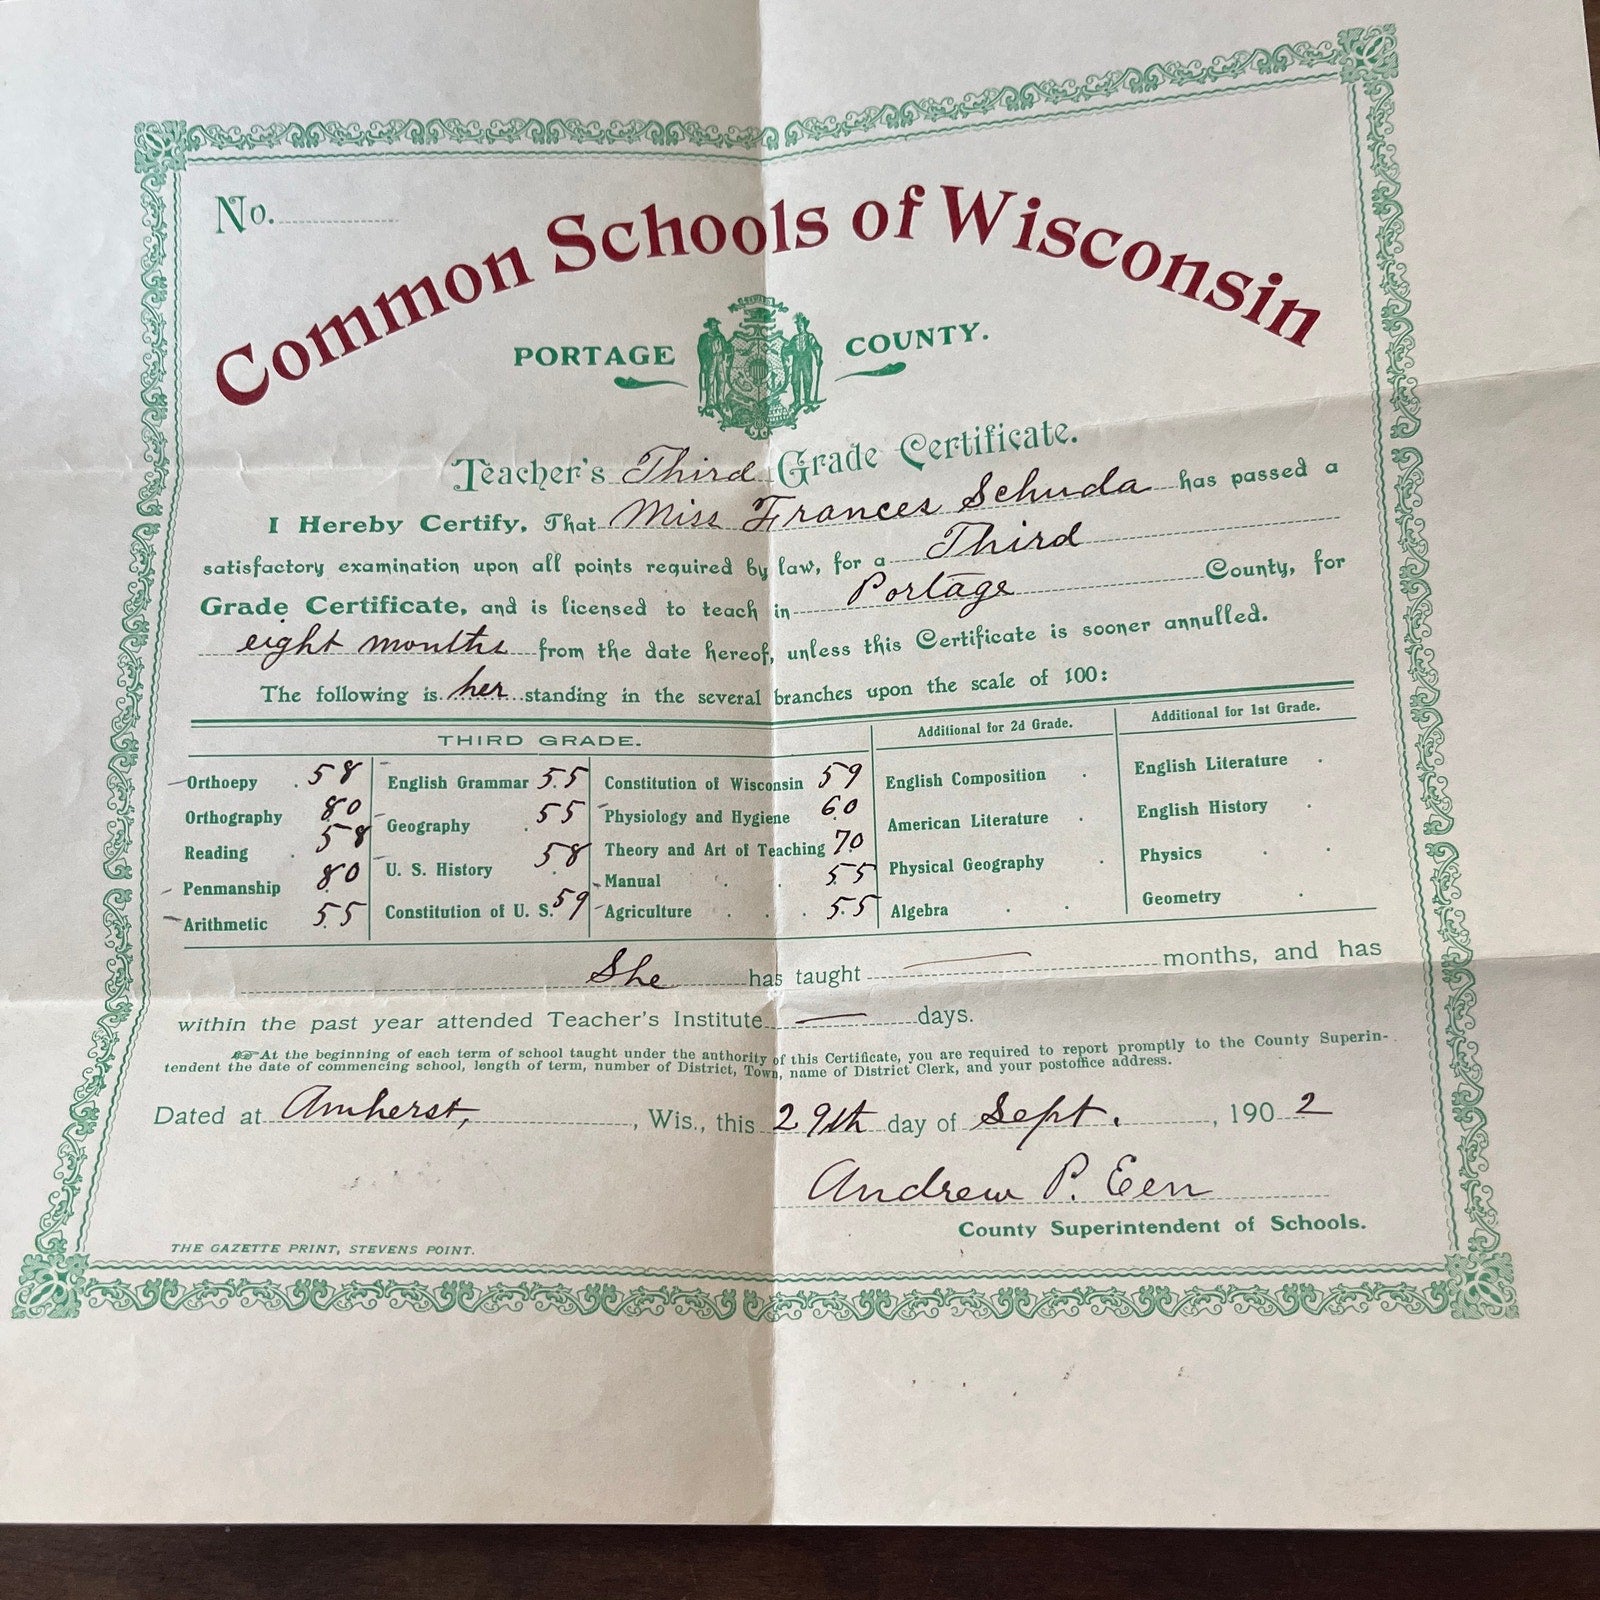 No.
Common Schools of Wisconsin
PORTAGE COUNTY.
Teacher's Third Grade Certificate.
I Hereby Certify, That Miss Frances Schuda has passed a
satisfactory examination upon all points required by law, for a Third
Grade Certificate, and is licensed to teach in Portage County, for
eight months from the date hereof, unless this Certificate is sooner annulled.
The following is her standing in the several branches upon the scale of 100:
THIRD GRADE.
Orthoepy 58
Orthography 80
Reading 58
Penmanship 80
Arithmetic 55
English Grammar 55
Geography 55
U. S. History 58
Constitution of U. S. 59
Constitution of Wisconsin 59
Physiology and Hygiene 60
Theory and Art of Teaching 70
Manual 55
Agriculture 55
Additional for 2d Grade.
English Composition
American Literature
Physical Geography
Algebra
Additional for 1st Grade.
English Literature
English History
Physics
Geometry
She has taught — months, and has
within the past year attended Teacher's Institute — days.
☞At the beginning of each term of school taught under the authority of this Certificate, you are required to report promptly to the County Superin-
tendent the date of commencing school, length of term, number of District, Town, name of District Clerk, and your postoffice address.
Dated at Amherst, Wis., this 29th day of Sept. , 1902
Andrew P. Een
County Superintendent of Schools.
THE GAZETTE PRINT, STEVENS POINT.